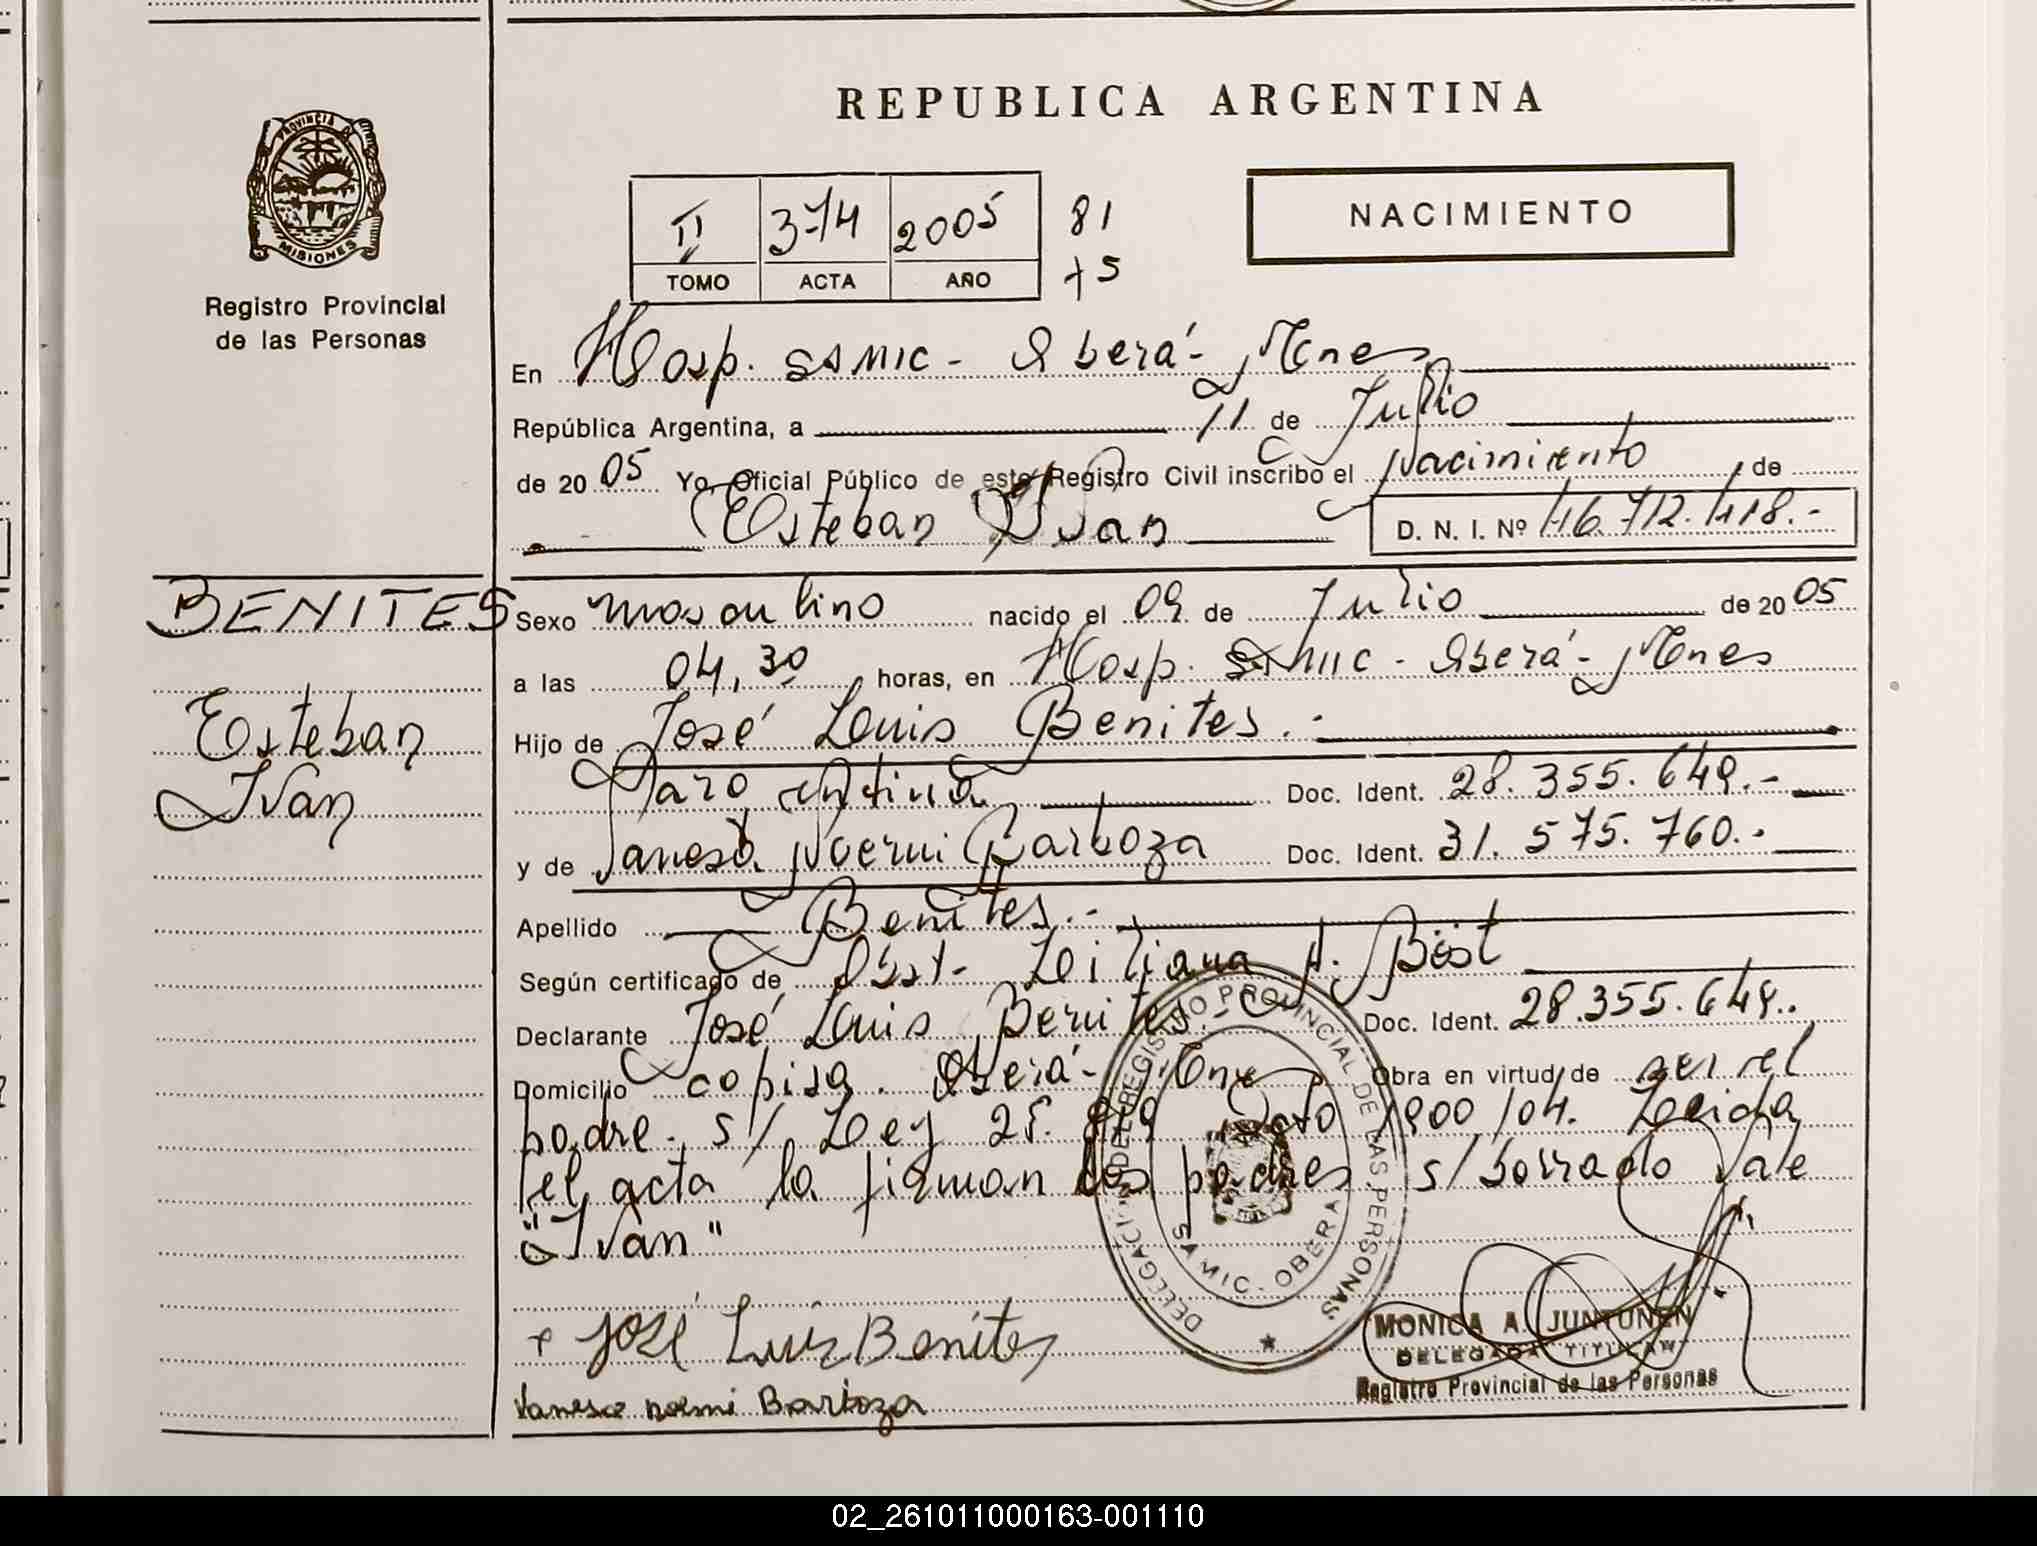 REPUBLICA ARGENTINA
PROVINCIA D
MISIONES
Registro Provincial
de las Personas
II 374 2005 81
TOMO ACTA AÑO 75
NACIMIENTO
En Hosp. SAMIC - Oberá - Mnes
República Argentina, a 11 de Julio
de 2005 Yo, Oficial Público de este Registro Civil inscribo el Nacimiento, de
Esteban Ivan D. N. I. Nº 46.712.418.-
BENITES
Esteban
Ivan
Sexo masculino nacido el 09 de Julio de 2005
a las 04,30 horas, en Hosp. SAMIC - Oberá - Mnes
Hijo de José Luis Benites.-
Doc. Ident. 28.355.649.-
y de Vanesa Noemi Barboza Doc. Ident. 31.575.760.-
Apellido Benites.-
Según certificado de Obst. Liliana A. Böst
Declarante José Luis Benites.- Doc. Ident. 28.355.649..
Domicilio copisa. Oberá - Mnes Obra en virtud de ser el
padre. s/ Ley 25.819 Dcto 1900/04. Leida
el acta la firman los padres s/borrado Vale
"Ivan"
José Luis Benites
Vanesa noemi Barboza
DELEGACION DEL REGISTRO PROVINCIAL DE LAS PERSONAS
SAMIC - OBERA
MONICA A. JUNTUNEN
DELEGADA TITULAR
Registro Provincial de las Personas
02_261011000163-001110